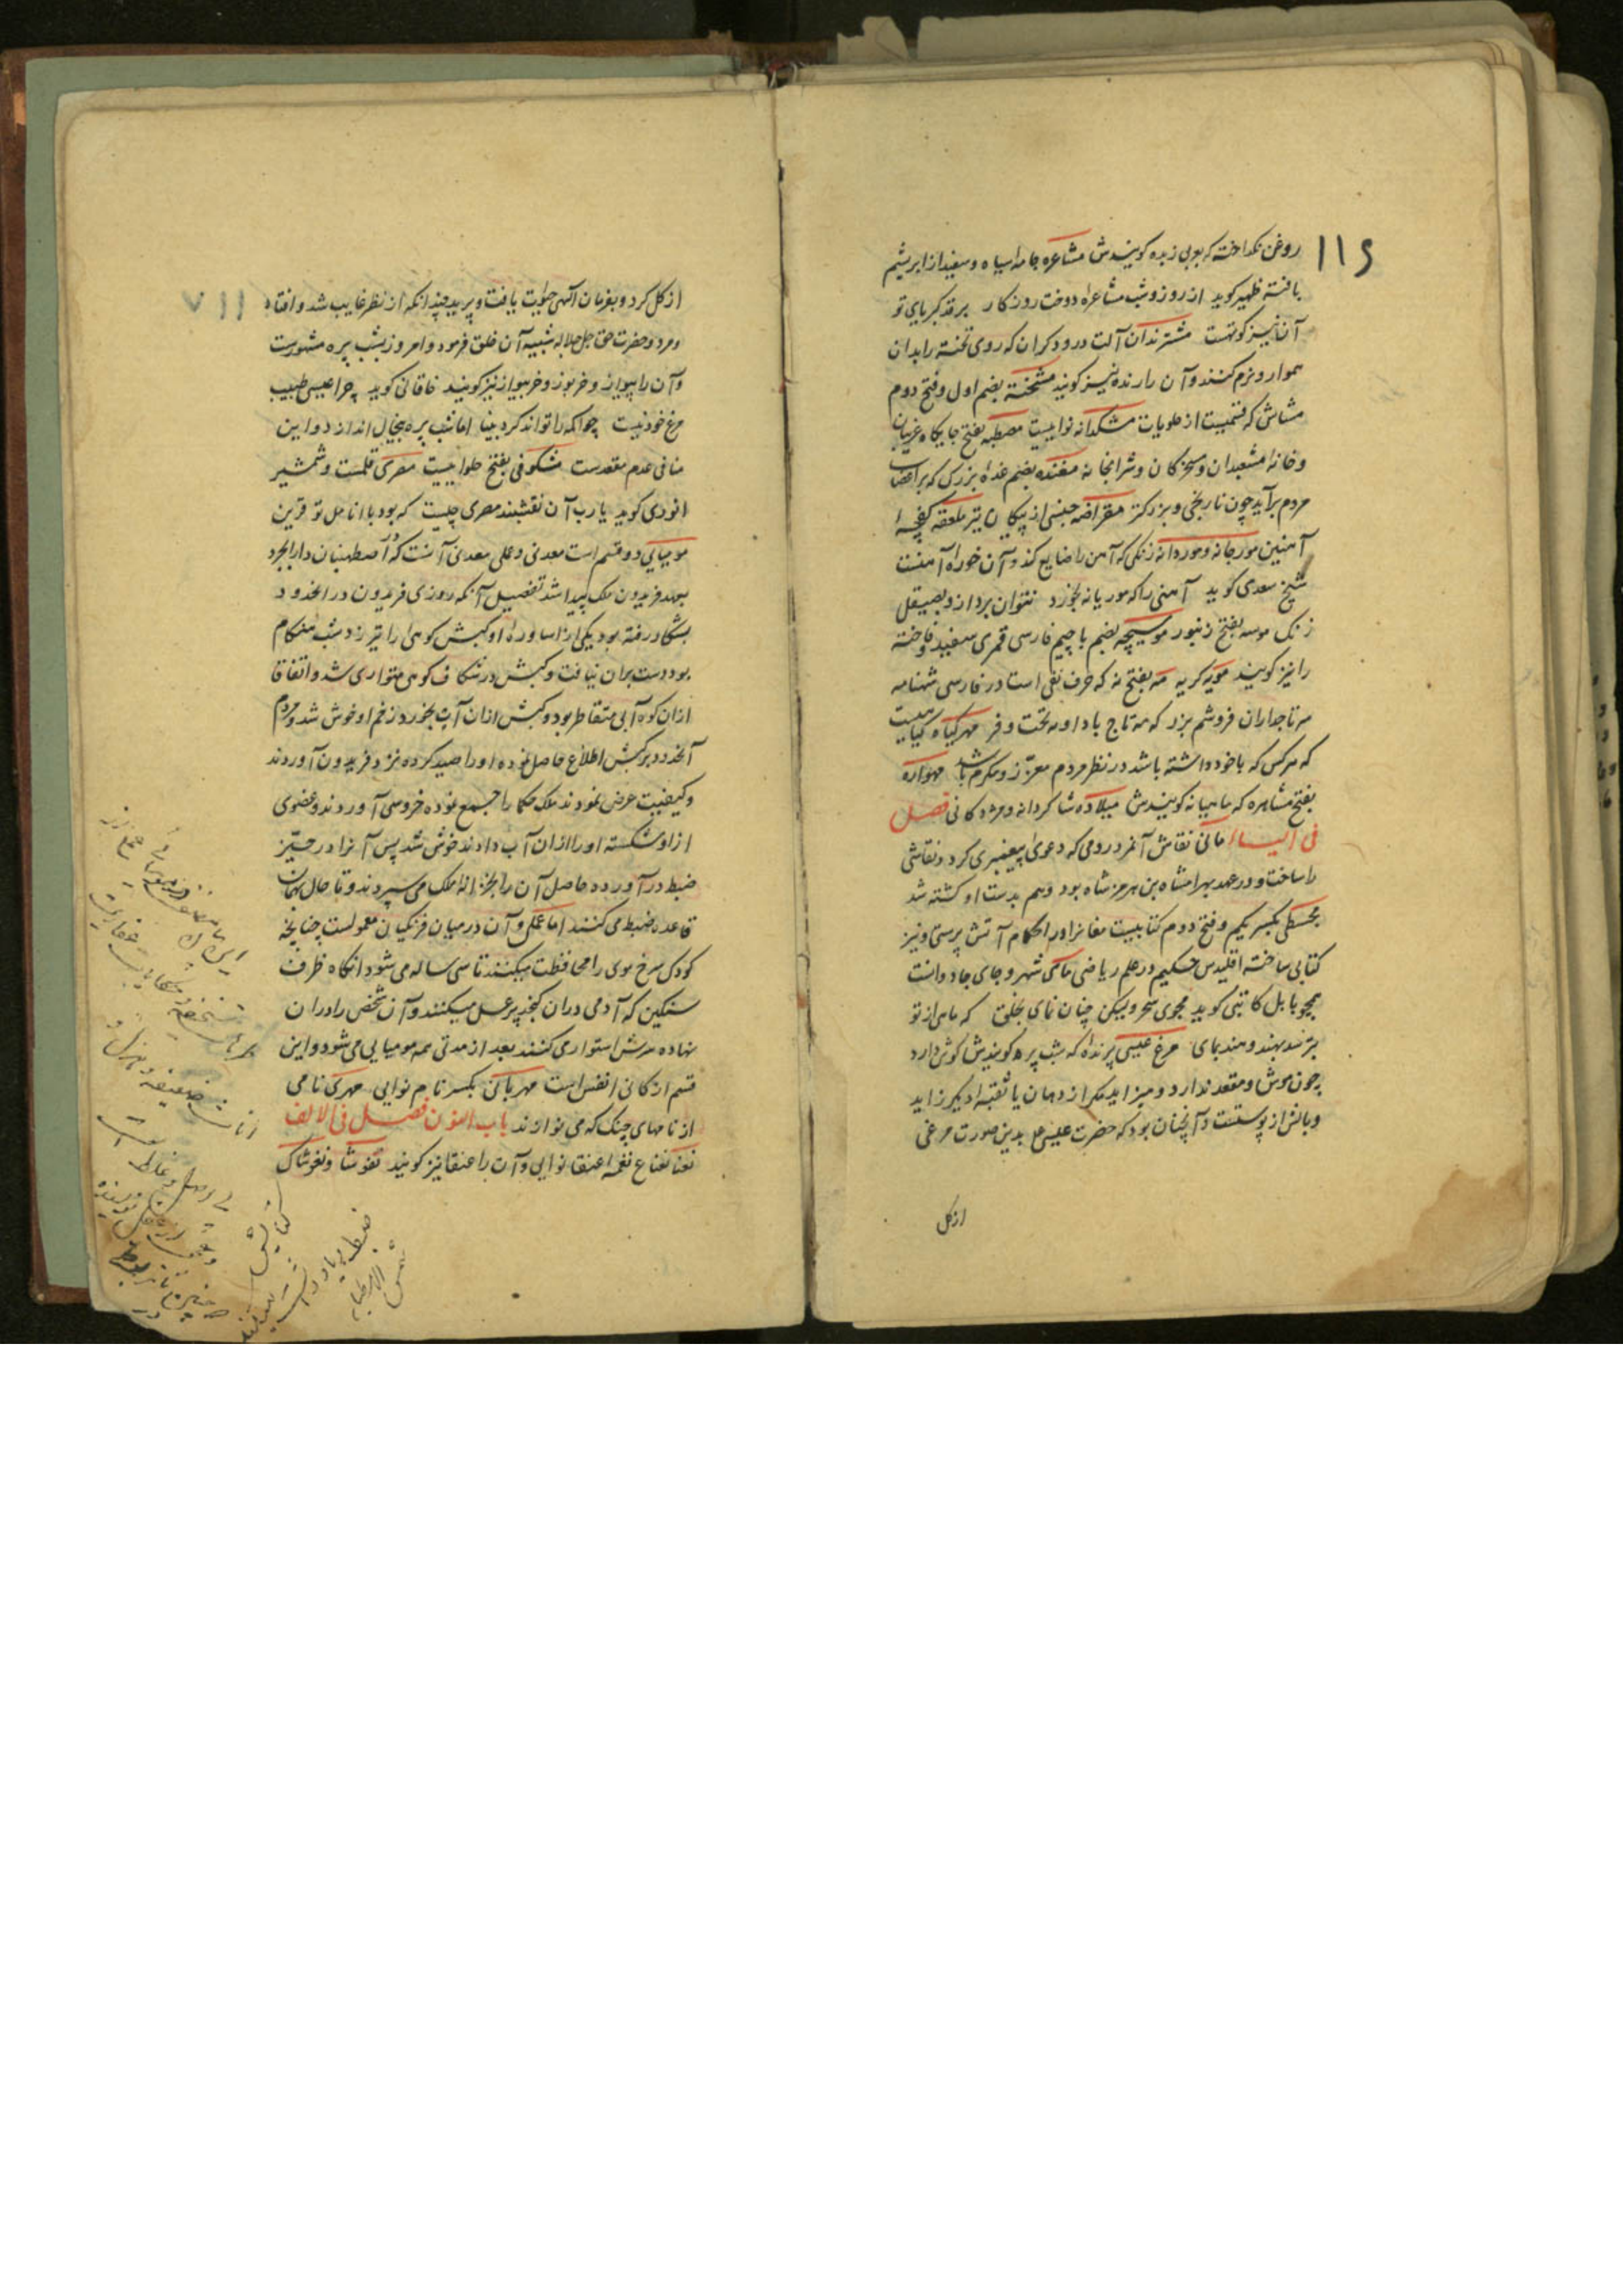 ۱۱۶
روغن نگداخته که بعربی زبده گویندش مشاعره جامه سیاه و سفید از ابریشم
بافته ظهیر گوید از روز و شب مشاعره دوخت روزگار بر قد کبریای تو
آن نیز کوتهست مشترندان آلت درودگران که روی تخته را بدان
هموار و نرم کنند و آن را رنده نیز گویند مشخته بضم اول و فتح دوم
مشاش که قسمیست از حلویات مشکدانه نواییست مصطبه بفتح جایگاه غریبان
و خانه مشعبدان و مسخرگان و شرابخانه مغنده بضم غده بزرگ که بر اعضای
مردم برآید چون نارنجی و بزرگتر مقراضه جنسی از پیکان تیر ملعقه کفچهٔ
آهنین مورجانه و موردانه زنگی که آهن را ضایع کند و آن خوره آهنست
شیخ سعدی گوید آهنی را که موریانه بخورد نتوان برد ازو بصیقل
زنگ موسه بفتح زنبور موسیچه بضم با جیم فارسی قمری سفید و فاخته
را نیز گویند مویه گریه مه بفتح نه که حرف نفی است در فارسی شهنامه
سر تاجداران فروشم بزر که مه تاج باد او مه تخت و فر مهر گیاه گیاهیست
که هر کس که با خود داشته باشد در نظر مردم معزز و مکرم باشد مهواره
بفتح مشاهره که ماهیانه گویندش میلاده شاگردانه و مژدگانی فصل
فی الیاء مانی نقاش آنمرد رومی که دعوی پیغمبری کرد و نقاشی
را ساخت و در عهد بهرامشاه بن هرمز شاه بود و هم بدست او کشته شد
مجسطی بکسر یکم و فتح دوم کتابیست مغانرا در احکام آتش پرستی و نیز
کتابی ساخته اقلیدس حکیم در علم ریاضی ماکی شهر و جای جادوانست
همچو بابل کاتبی گوید مجوی سحر ولیکن چنان نمای بخلق که ماهی از تو
بترسد بهند و هند بمای مرغ عیسی پرنده که شب پره گویندش گوش دارد
چون موش و مقعد ندارد و میزاید مگر از دهان یا ثقبه دیگر زاید
و بالش از پوستست و آنچنان بود که حضرت عیسی ع بدین صورت مرغی
از گل
۱۱۷
از گل کرد و بفرمان آلهی حیات یافت و پرید چندانکه از نظر غایب شد و افتاد
و مرد و حضرت حق جل جلاله شبیه آن خلق فرمود و امروز بشب پره مشهورست
و آن را بیواز و خربوز و خربیواز نیز گویند خاقانی گوید چرا عیسی طبیب
مرغ خود نیست چو اکمه را تواند کرد بینا اما شب پره بیخال اندازد و این
منافی عدم مقعدست مشکوفی بفتح حلواییست مصری قلمست و شمشیر
انوری گوید یا رب آن نقشبند مصری چیست که بود با انامل تو قرین
مومیایی دو قسم است معدنی و عملی معدنی آنست که در اصطهبنان دارابجرد
بعهد فریدون ملک پیدا شد تفصیل آنکه روزی فریدون در آنحدود
بشکار رفته بود یکی از اساوره او کبش کوهی را تیر زد شب هنگام
بود دست بران نیافت و کبش در شکاف کوهی متواری شد و اتفاقا
ازان کوه آبی متقاطر بود و کبش ازان آب بخورد زخم او خوش شد و مردم
آنحدود بر کبش اطلاع حاصل نموده او را صید کرده نزد فریدون آوردند
و کیفیت عرض نمودند ملک حکما را جمع نموده خروسی آوردند و عضوی
ازو شکسته او را ازان آب دادند خوش شد پس آنرا در حیّز
ضبط درآورده حاصل آن را بخزانه ملک می سپردند و تا حال بهمان
قاعده ضبط می کنند اما عملی و آن در میان فرنگیان معمولست چنانچه
کودکی سرخ موی را محافظت میکنند تا سی ساله می شود آنگاه ظرف
سنگین که آدمی دران گنجد پر عسل میکنند و آن شخص را دران
نهاده سرش استوار می کنند بعد از مدتی همه مومیایی می شود و این
قسم از کانی انفس است مهربانی بکسر نام نوایی مهرکی نامی
از نامهای چنگ که می نوازند باب النون فصل فی الالف
نعنا نعناع نغمه عنقا نوایی و آن را عنقا نیز گویند نغوشا و نغوشاک